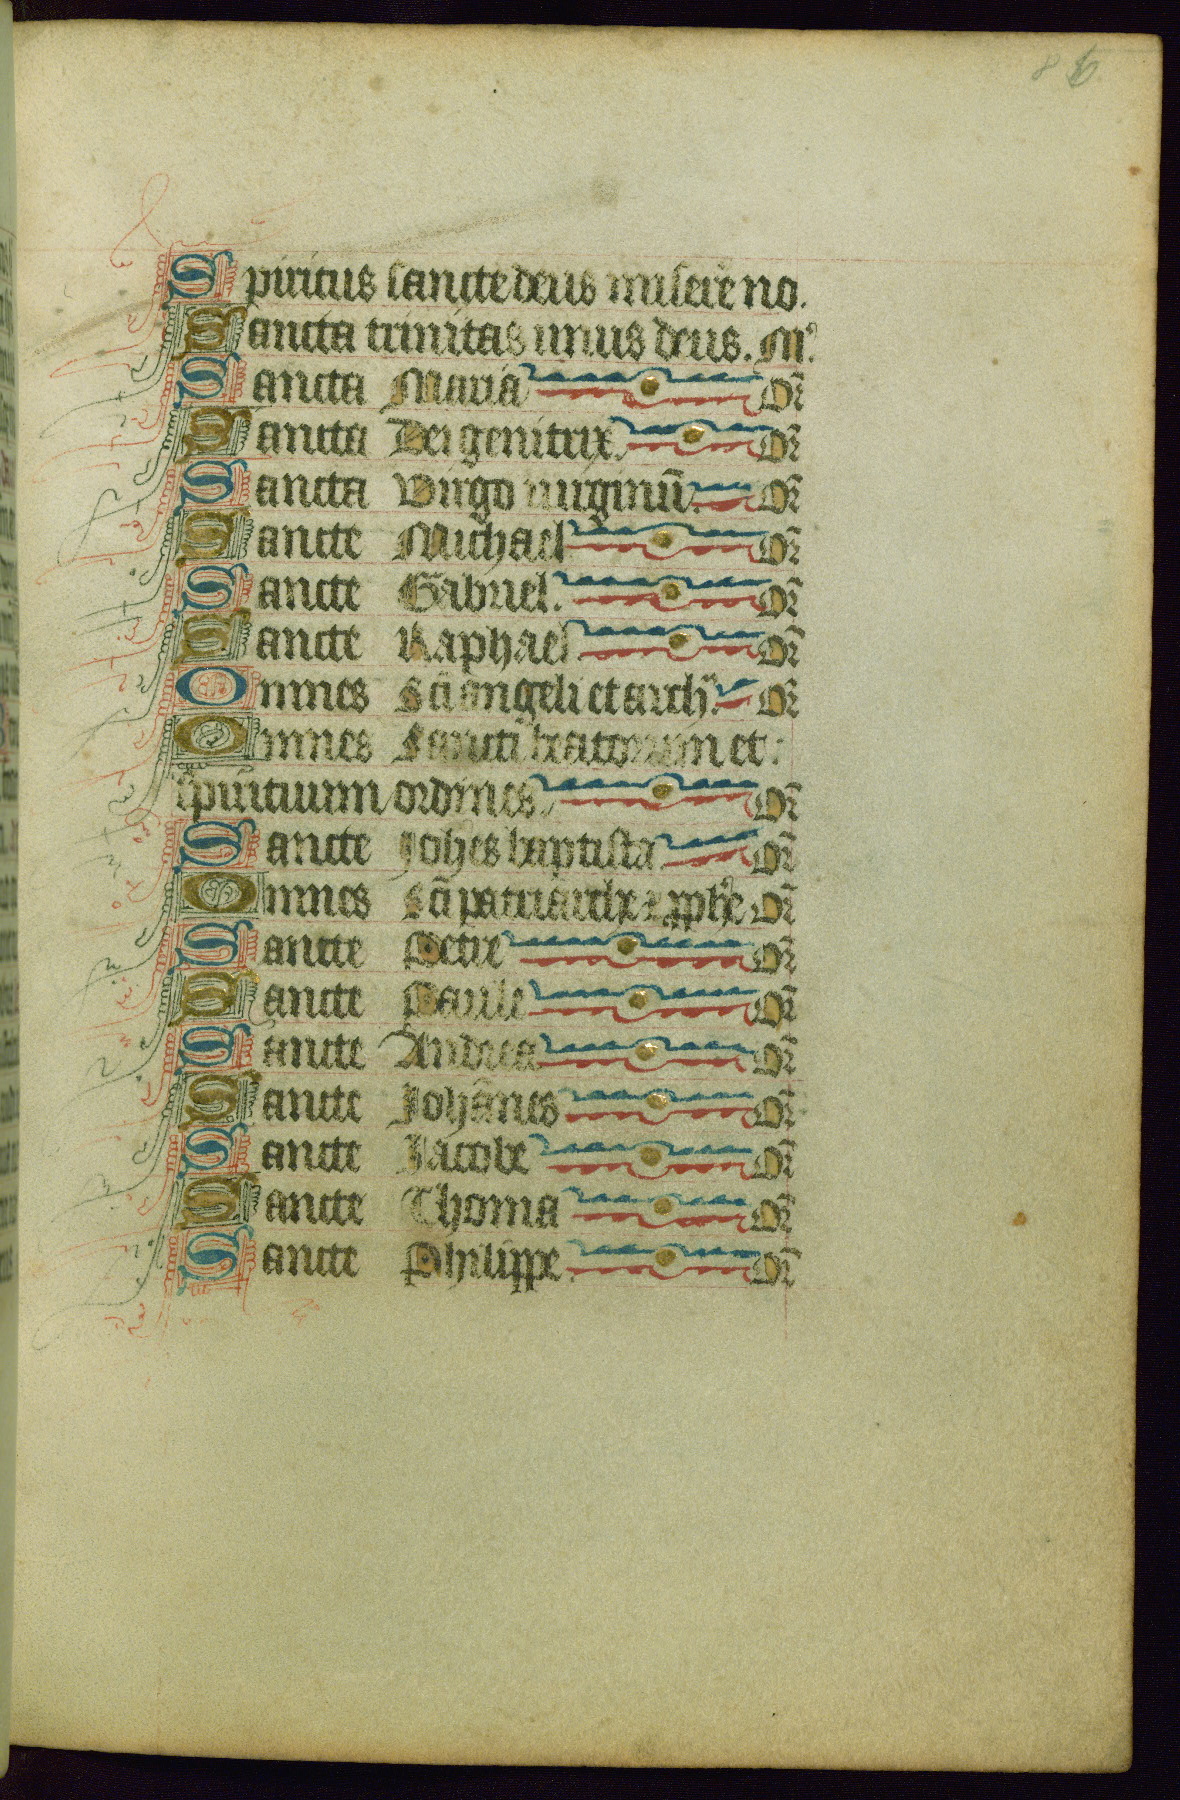 Spiritus sancte deus misere̅ no.
Sancta trinitas unus deus. Mi᷒.
Sancta Maria Or̅
Sancta Dei genitrix. Or̅
Sancta Virgo uirginu̅. Or̅
Sancte Michael Or̅
Sancte Gabriel. Or̅
Sancte Raphael Or̅
Omnes Sc̅i angeli et arch̅i. Or̅
Omnes Sancti beatorum et
spirituum ordines. Or̅
Sancte Joh̅es baptista Or̅
Omnes Sc̅i patriarche ⁊ ꝓphe̅ Or̅
Sancte Petre Or̅
Sancte Paule Or̅
Sancte Andrea Or̅
Sancte Joha̅nes Or̅
Sancte Jacobe Or̅
Sancte Thoma Or̅
Sancte Philippe. Or̅